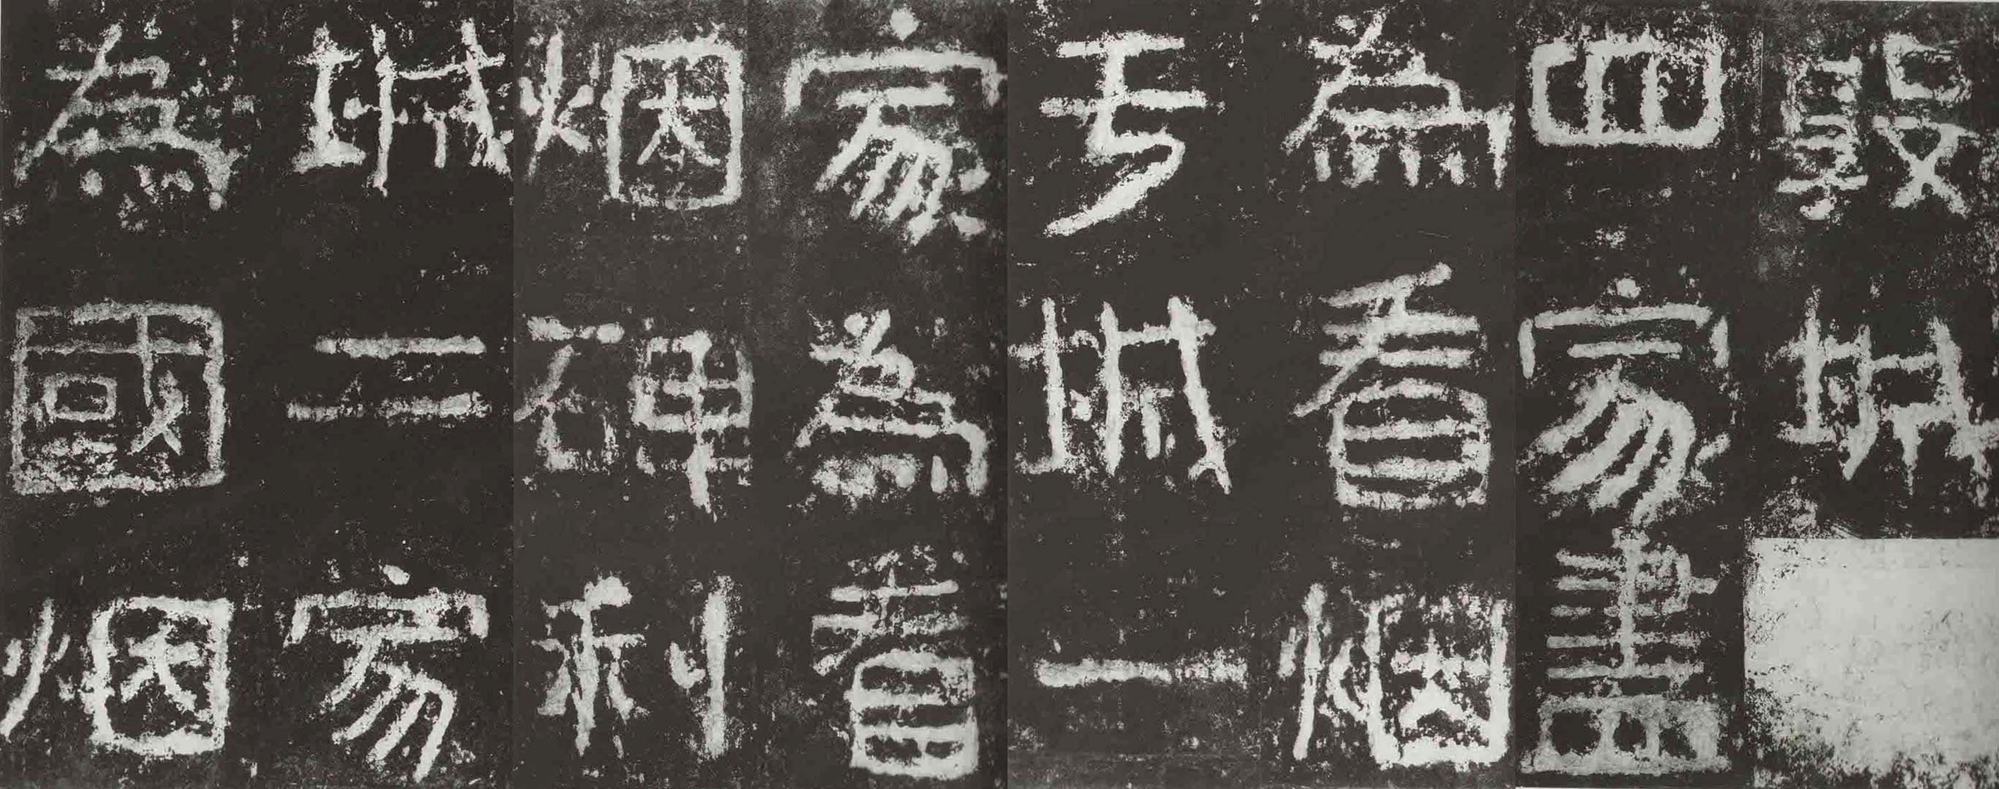 敦城
四家盡
為看烟
于城一
家為看
烟碑利
城二家
為國烟